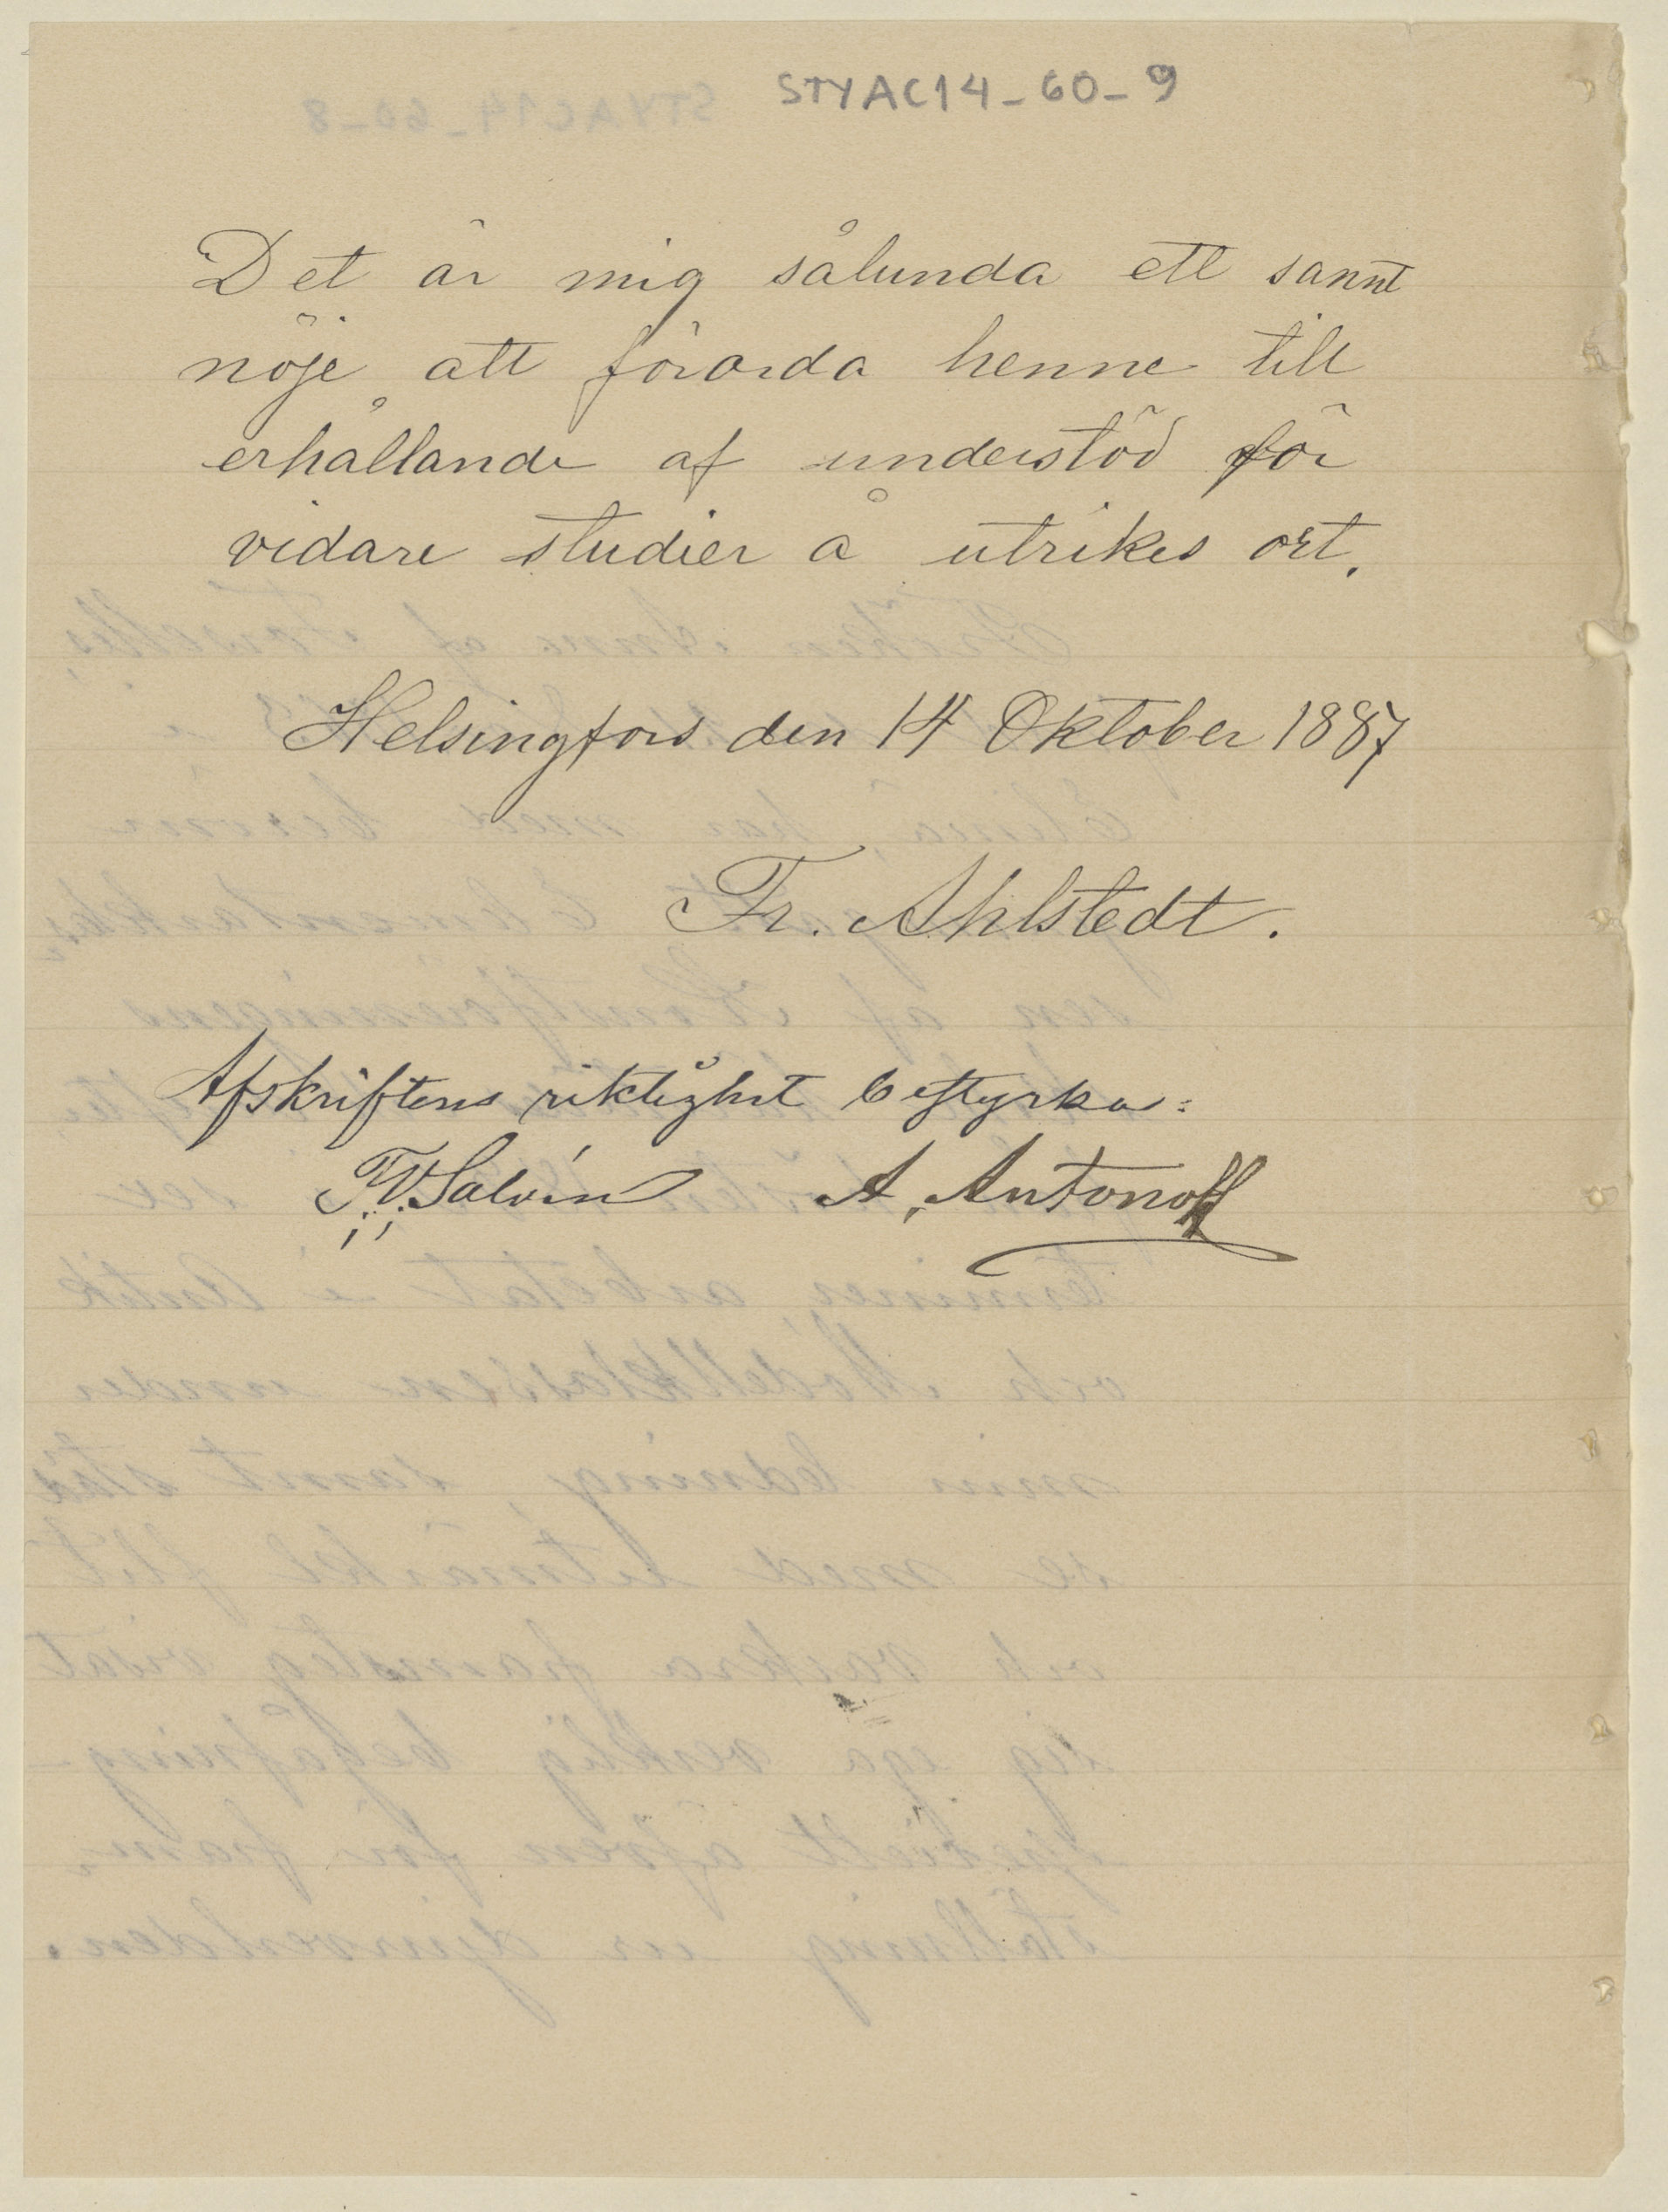 STYAC14_60_9
Det är mig sålunda ett sannt
nöje att förorda henne till
erhållande af understöd för
vidare studier å utrikes ort.
Helsingfors den 14 Oktober 1887
Fr. Ahlstedt.
Afskriftens riktighet bestyrka:
F.V. Salvén A. Antonoff